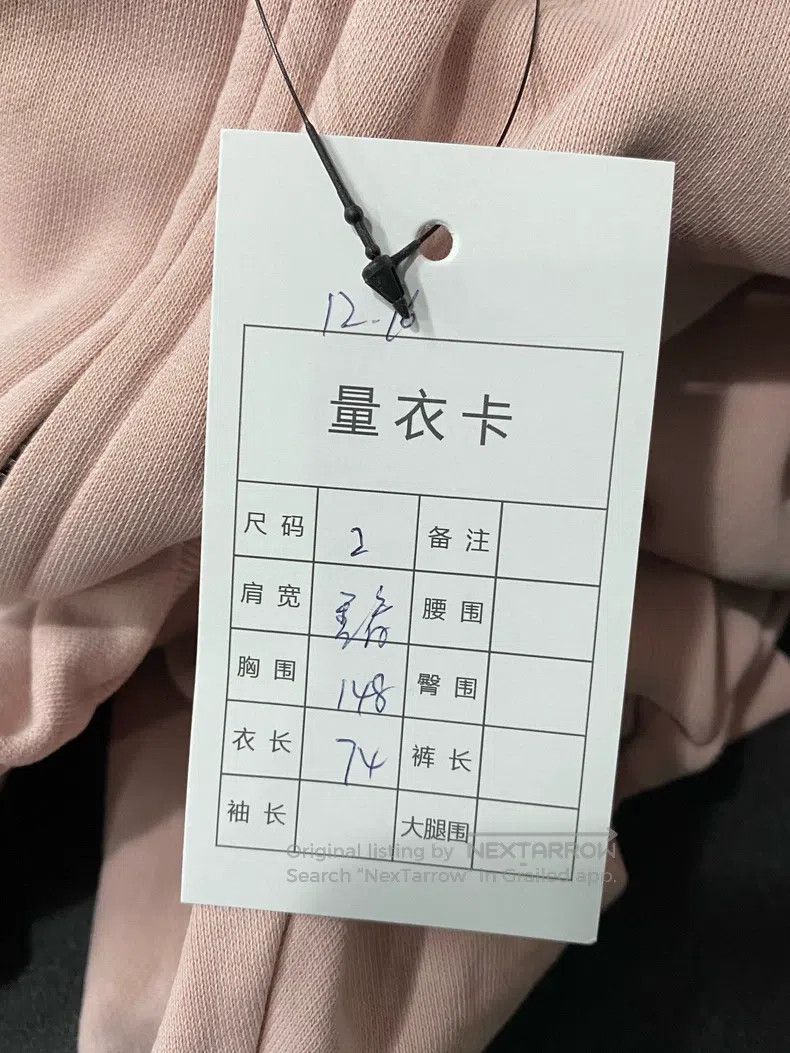 12-16
量衣卡
尺码 2 备注
肩宽 腰围
胸围 148 臀围
衣长 74 裤长
袖长 大腿围
Original listing by NEXTARROW
Search "NexTarrow" in Grailed app.